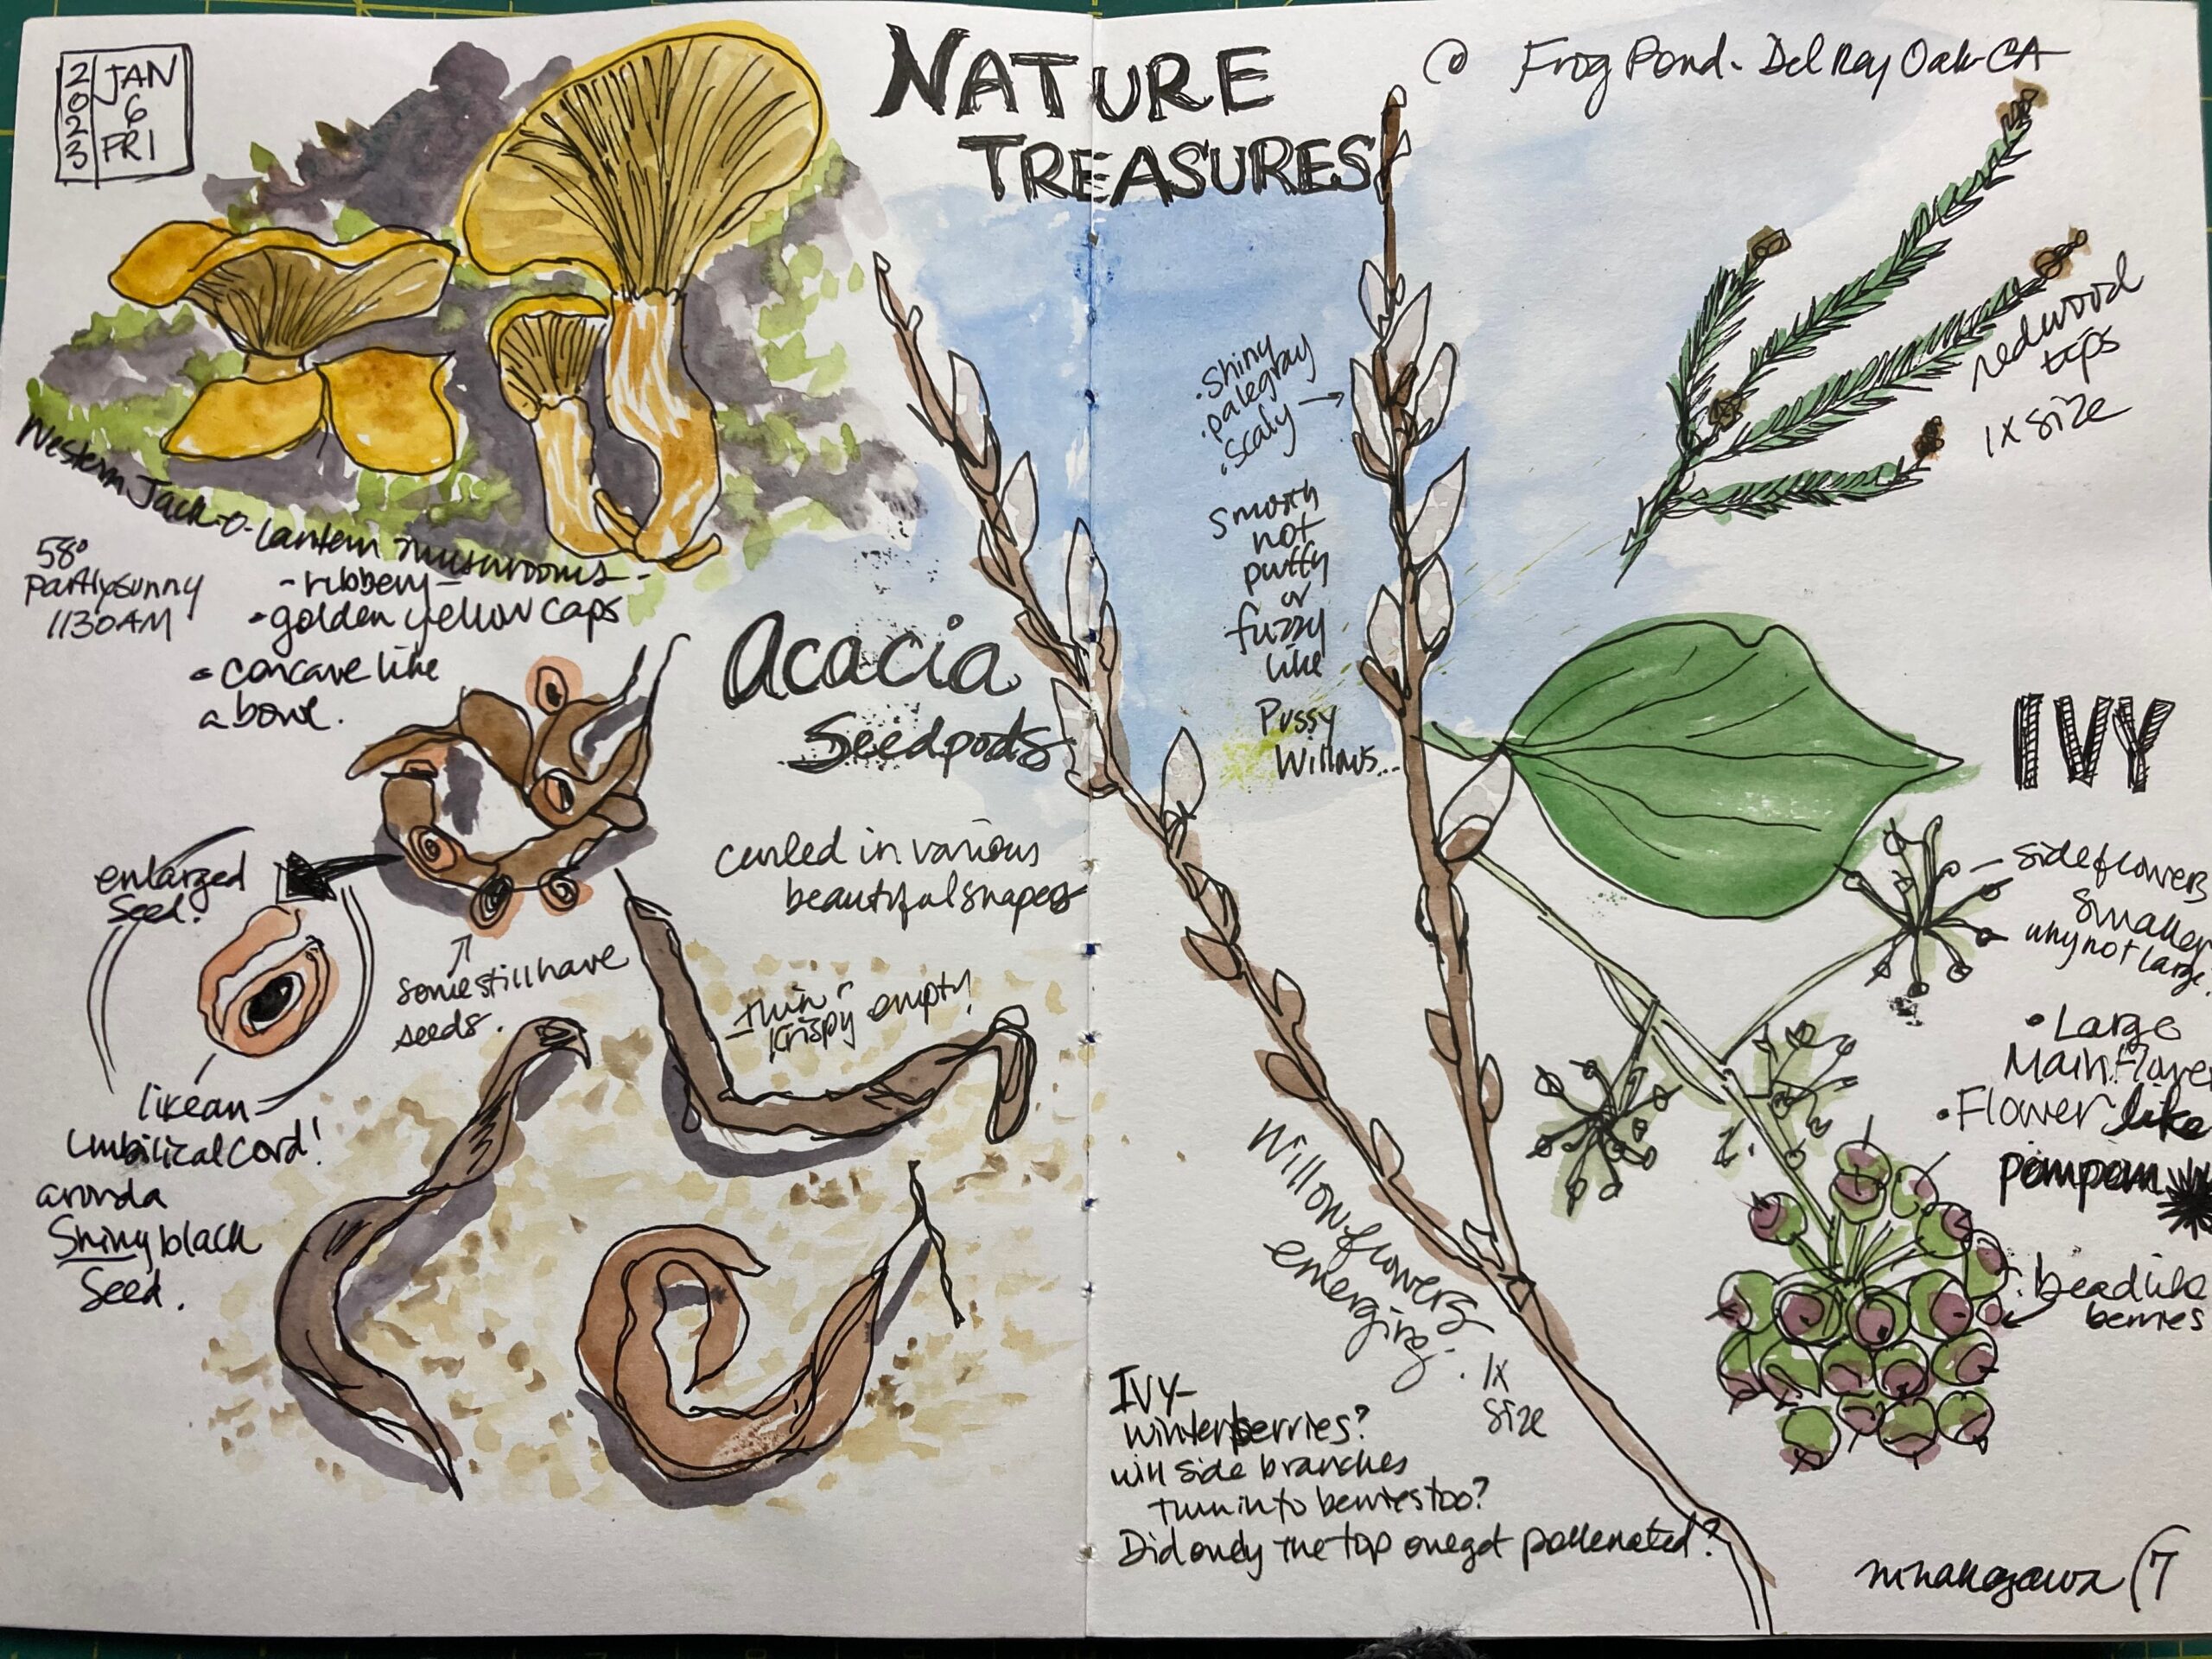 2023
JAN
6
FRI
NATURE
TREASURES
@ Frog Pond - Del Ray Oak-CA
Western Jack-o-lantern mushrooms -
58°
Partly sunny
1130 AM
- rubbery -
- golden yellow caps
- concave like
a bowl.
Acacia
Seedpods
curled in various
beautiful shapes
enlarged
seed.
some still have
seeds.
thin & krispy empty!
like an
umbilical cord!
around a
Shiny black
Seed.
. Shiny
. pale gray
. scaly
smooth
not
puffy
or
fuzzy
like
Pussy
Willows...
redwood
tips
1x size
IVY
side flowers
smaller
why not large.
• Large
Main Flower
• Flower like
pompom
: bead like
berries
Willow flowers
emerging.
. 1x
size
IVY-
winter berries?
will side branches
turn into berries too?
Did only the top one get pollenated?
7